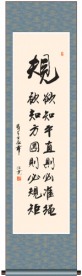 規
欲知平直則必準繩
欲知方圓則必規矩